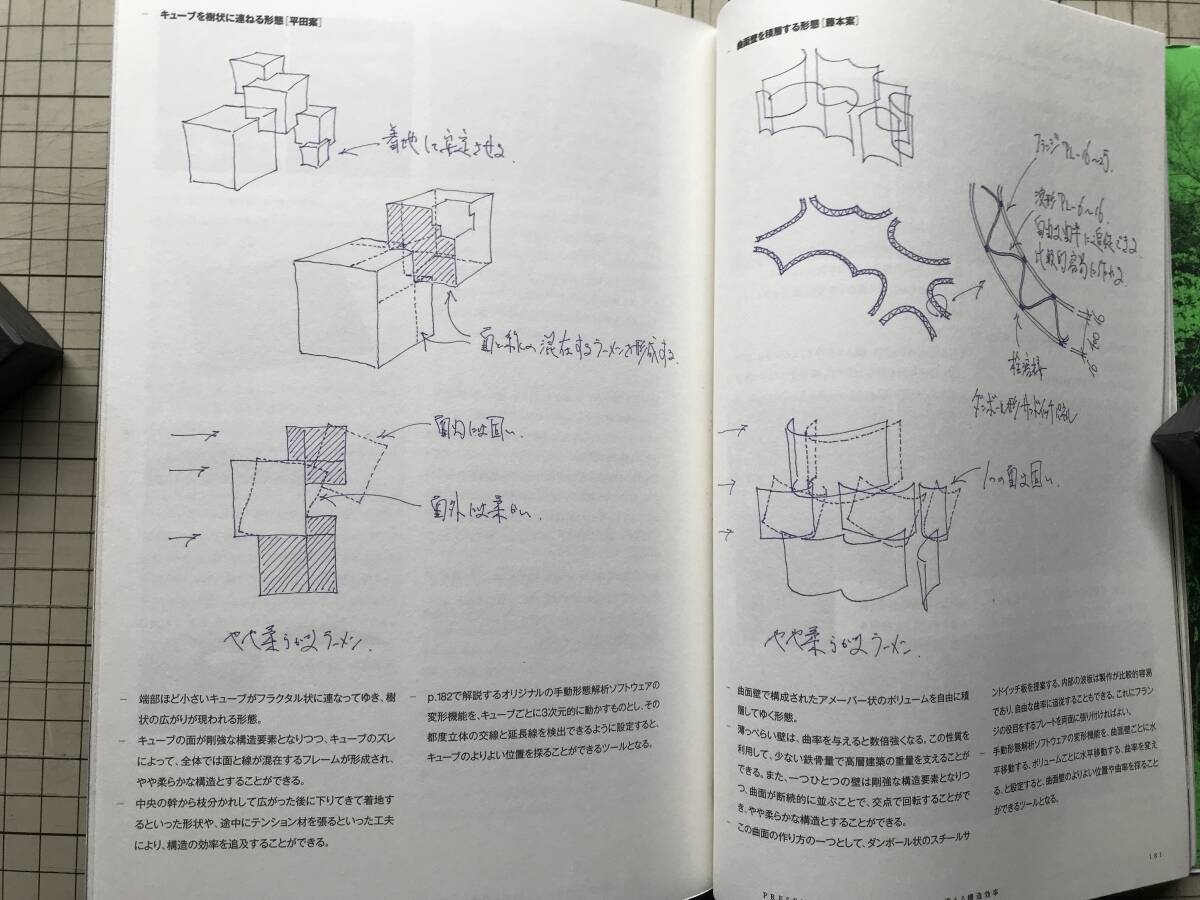 キューブを樹状に連ねる形態[平田案]
着地して安定させる.
面と線の混在するラーメンで形成する.
面内には固い.
面外には柔かい.
やや柔らかなラーメン.
端部ほど小さいキューブがフラクタル状に連なってゆき、樹
状の広がりが現われる形態。
キューブの面が剛強な構造要素となりつつ、キューブのズレ
によって、全体では面と線が混在するフレームが形成され、
やや柔らかな構造とすることができる。
中央の幹から枝分かれして広がった後に下りてきて着地す
るといった形状や、途中にテンション材を張るといった工夫
により、構造の効率を追及することができる。
p.182で解説するオリジナルの手動形態解析ソフトウェアの
変形機能を、キューブごとに3次元的に動かすものとし、その
都度立体の交線と延長線を検出できるように設定すると、
キューブのよりよい位置を探ることができるツールとなる。
曲面壁を積層する形態[藤本案]
フランジPL-16〜25.
波形PL-6〜16.
自由な曲率に追従できる
比較的容易に作れる.
栓溶接
ダンボール形サンドイッチパネル
1つの面は固い.
やや柔らかなラーメン.
曲面壁で構成されたアメーバー状のボリュームを自由に積
層してゆく形態。
薄っぺらい壁は、曲率を与えると数倍強くなる。この性質を
利用して、少ない鉄骨量で高層建築の重量を支えることが
できる。また、一つひとつの壁は剛強な構造要素となりつ
つ、曲面が断続的に並ぶことで、交点で回転することがで
き、やや柔らかな構造とすることができる。
この曲面の作り方の一つとして、ダンボール状のスチールサ
ンドイッチ板を提案する。内部の波板は製作が比較的容易
であり、自由な曲率に追従することもできる。これにフラン
ジの役目をするプレートを両面に張り付ければよい。
手動形態解析ソフトウェアの変形機能を、曲面壁ごとに水
平移動する、ボリュームごとに水平移動する、曲率を変え
る、と設定すると、曲面壁のよりよい位置や曲率を探ること
ができるツールとなる。
181